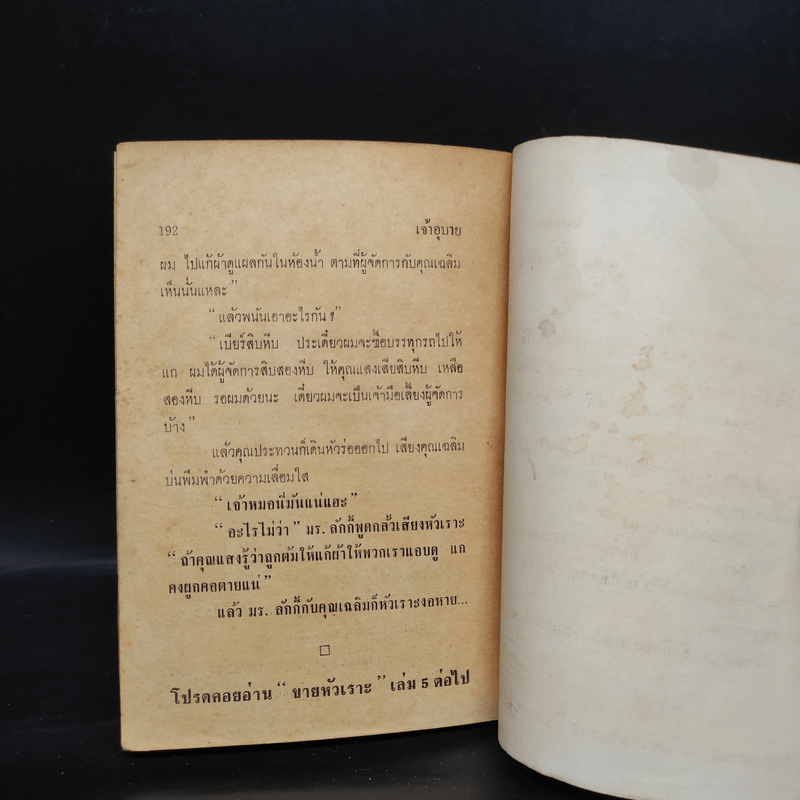 192 เจ้าอุบาย
ผม ไปแก้ผ้าดูแผลกันในห้องน้ำ ตามที่ผู้จัดการกับคุณเฉลิม
เห็นนั่นแหละ”
“แล้วพนันเอาอะไรกัน?”
“เบียร์สิบหีบ ประเดี๋ยวผมจะซื้อบรรทุกรถไปให้
แก ผมได้ผู้จัดการสิบสองหีบ ให้คุณแสงเสียสิบหีบ เหลือ
สองหีบ รอผมด้วยนะ เดี๋ยวผมจะเป็นเจ้ามือเลี้ยงผู้จัดการ
บ้าง”
แล้วคุณประทวนก็เดินหัวร่อออกไป เสียงคุณเฉลิม
บ่นพึมพำด้วยความเลื่อมใส
“เจ้าหมอนี่มันแน่แฮะ”
“อะไรไม่ว่า” มร. ลักกี้พูดกลั้วเสียงหัวเราะ
“ถ้าคุณแสงรู้ว่าถูกต้มให้แก้ผ้าให้พวกเราแอบดู แก
คงผูกคอตายแน่”
แล้ว มร. ลักกี้กับคุณเฉลิมก็หัวเราะงอหาย...
โปรดคอยอ่าน “ขายหัวเราะ” เล่ม 5 ต่อไป